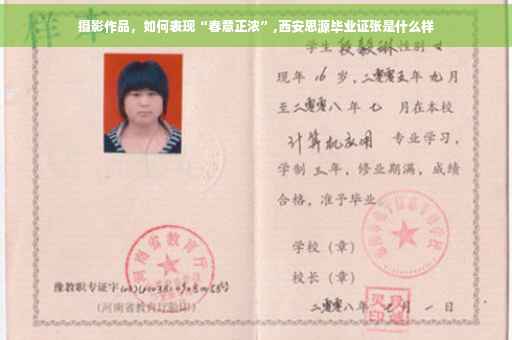 摄影作品，如何表现“春意正浓”,西安思源毕业证张是什么样
样本
学生 段毅琳 性别 女
现年 16 岁，二零零五年 九月
至二零零八年 七 月在本校
计算机应用 专业学习，
学制 三年，修业期满，成绩
合格，准予毕业
学校（章）
校长（章）
豫教职专证字
(河南省教育厅验印)
二零零八年 月 一 日
河南省教育厅